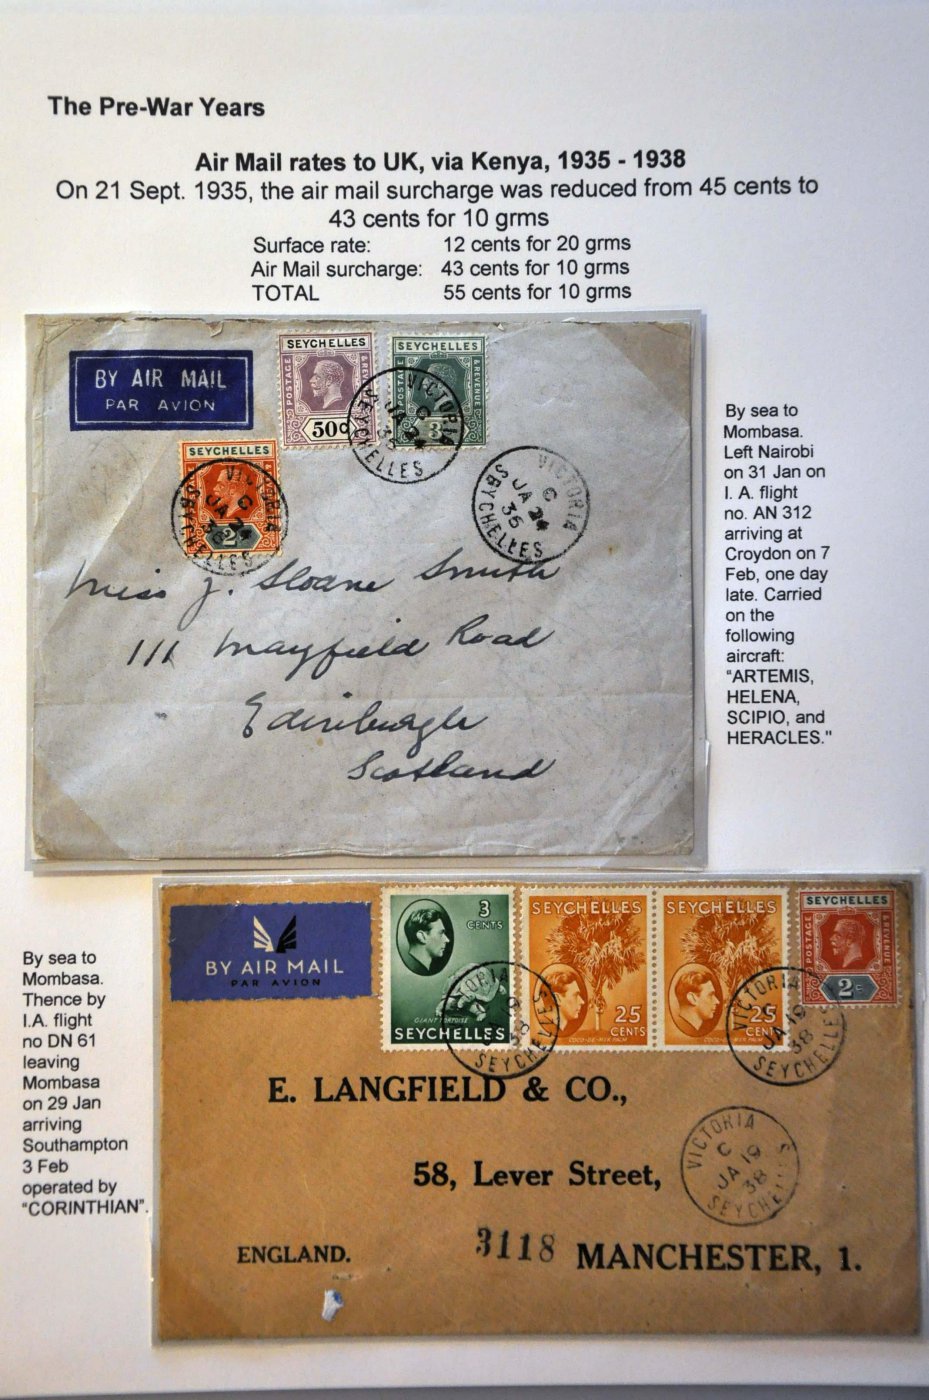 The Pre-War Years
Air Mail rates to UK, via Kenya, 1935 - 1938
On 21 Sept. 1935, the air mail surcharge was reduced from 45 cents to
43 cents for 10 grms
Surface rate: 12 cents for 20 grms
Air Mail surcharge: 43 cents for 10 grms
TOTAL 55 cents for 10 grms
BY AIR MAIL
PAR AVION
SEYCHELLES
POSTAGE
& REVENUE
50c
SEYCHELLES
POSTAGE
& REVENUE
3
VICTORIA
C
JA 24
36
SEYCHELLES
SEYCHELLES
2c
VICTORIA
C
JA 24
36
SEYCHELLES
VICTORIA
C
JA 24
36
SEYCHELLES
Miss J. Sloane Smith
111 Mayfield Road
Edinburgh
Scotland
By sea to
Mombasa.
Left Nairobi
on 31 Jan on
I. A. flight
no. AN 312
arriving at
Croydon on 7
Feb, one day
late. Carried
on the
following
aircraft:
“ARTEMIS,
HELENA,
SCIPIO, and
HERACLES."
By sea to
Mombasa.
Thence by
I.A. flight
no DN 61
leaving
Mombasa
on 29 Jan
arriving
Southampton
3 Feb
operated by
“CORINTHIAN”.
BY AIR MAIL
PAR AVION
3
CENTS
GIANT TORTOISE
SEYCHELLES
SEYCHELLES
25
CENTS
COCO-DE-MER PALM
SEYCHELLES
25
CENTS
COCO-DE-MER PALM
SEYCHELLES
POSTAGE
& REVENUE
2c
VICTORIA
C
38
SEYCHELLES
VICTORIA
JA 19
38
SEYCHELLES
E. LANGFIELD & CO.,
58, Lever Street,
VICTORIA
C
JA 19
38
SEYCHELLES
3118 MANCHESTER, 1.
ENGLAND.